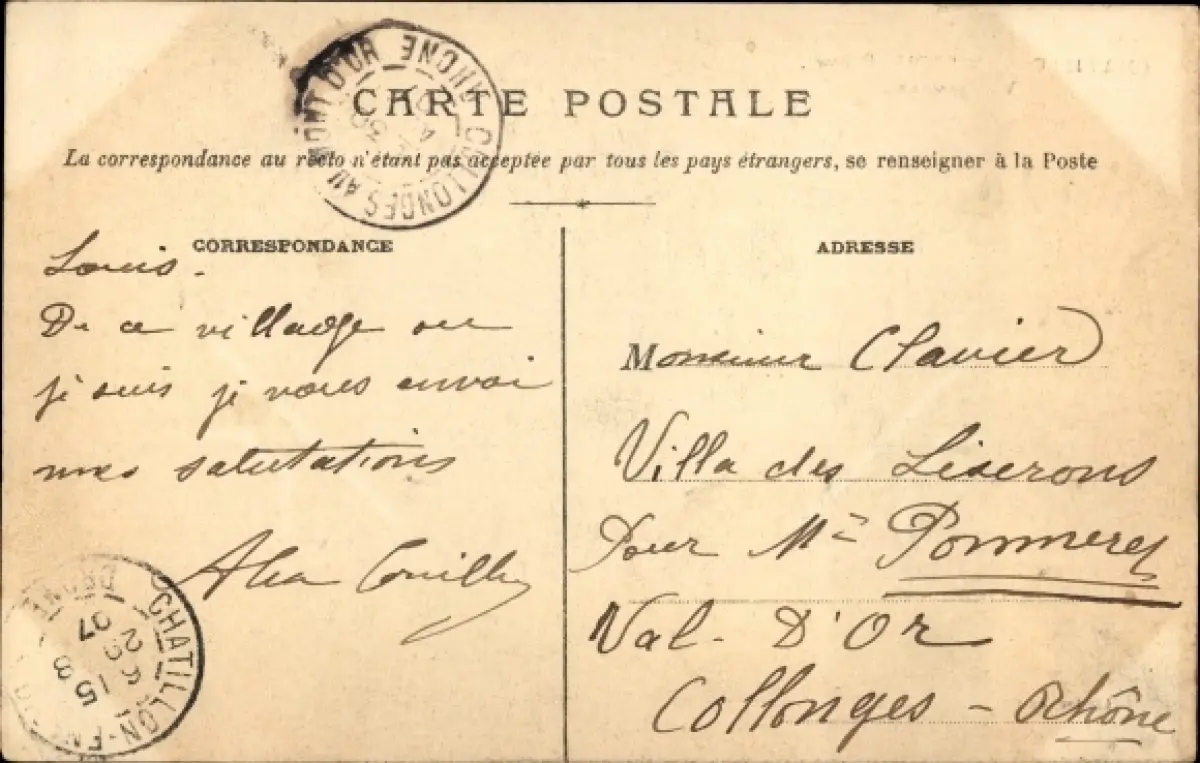 CARTE POSTALE
La correspondance au recto n'étant pas acceptée par tous les pays étrangers, se renseigner à la Poste
CORRESPONDANCE
Louis.
De ce village ou
je suis je vous envoi
mes salutations
ADRESSE
Monsieur Clavier
Villa des Liserons
Pour Mr Pommerey
Val. D'Or
Collonges - Rhône
COLLONGES AU MONT D'OR RHONE
CHATILLON-EN- DROME
15 29 07